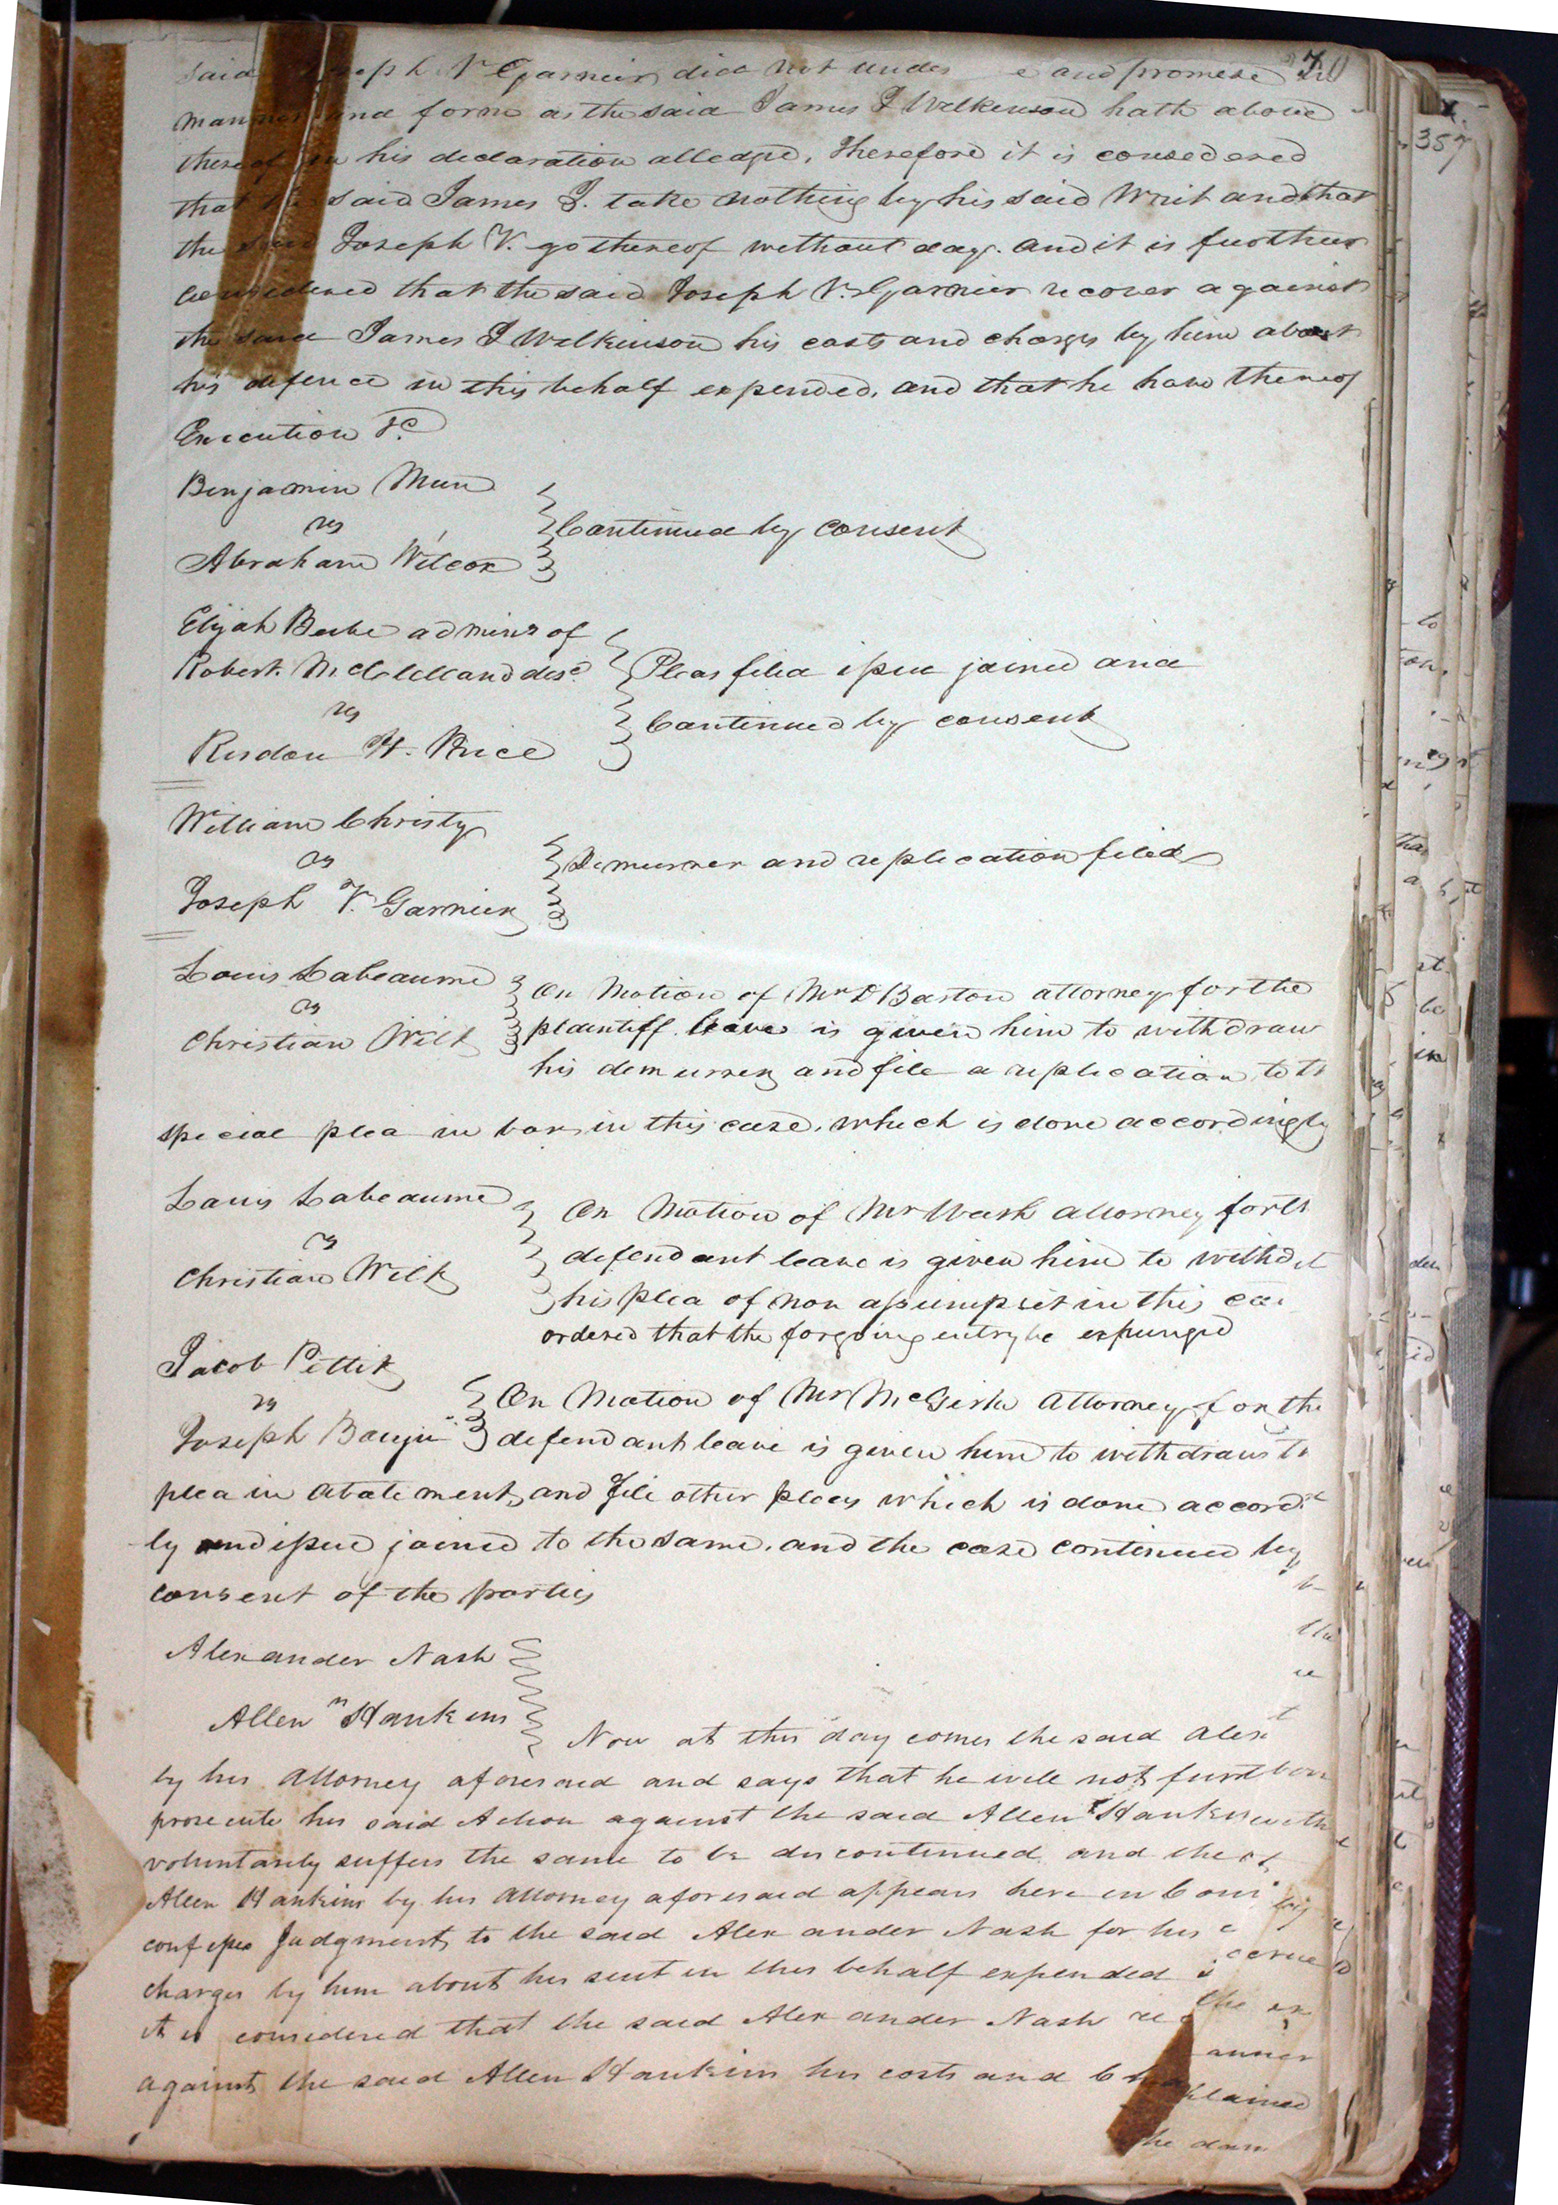 said Joseph V Garnier did not unde e and promise 70
manner and form as the said James J Wilkinson hath above
thereof in his declaration alledge, Therefore it is considered
that the said James J. take nothing by his said Writ and that
the said Joseph V. go thereof without day. and it is further
considered that the said Joseph V. Garnier recover against
the said James J Wilkinson his costs and charges by him about
his defence in this behalf expended, and that he have thereof
Execution &c
Benjamin Mun
vs
Abraham Wilcox
Continued by consent
Elijah Beebe admins of
Robert McClelland desc
vs
Risdon H. Price
Pleas filed issue joined and
Continued by consent
William Christy
vs
Joseph V. Garnier
Demurrer and replication filed
Louis Labeaume
vs
Christian Wilt
On Motion of Mr D Barton attorney for the
plaintiff leave is given him to withdraw
his demurrer and file a replication to th
special plea in bar in this case, which is done accordingly
Louis Labeaume
vs
Christian Wilt
On Motion of Mr Wash attorney for th
defendant leave is given him to withd
his plea of non assumpsit in this ca
ordered that the forgoing entry be expunged
Jacob Pettit
vs
Joseph Bouju
On Motion of Mr McGirk Attorney for the
defendant leave is given him to withdraw th
plea in Abatement, and file other pleas which is done accord
ly and issue joined to the same. and the case continued by
consent of the parties
Alexander Nash
vs
Allen Hankins
Now at this day comes the said Alex
by his Attorney aforesaid and says that he will not further
prosecute his said Action against the said Allen Hankins
voluntarily suffers the same to be discontinued and the
Allen Hankins by his Attorney aforesaid appears here in Cour
confesses Judgment, to the said Alexander Nash for his c
charges by him about his suit in this behalf expended
it is considered that the said Alexander Nash re
against the said Allen Hankins his costs and Cha
357